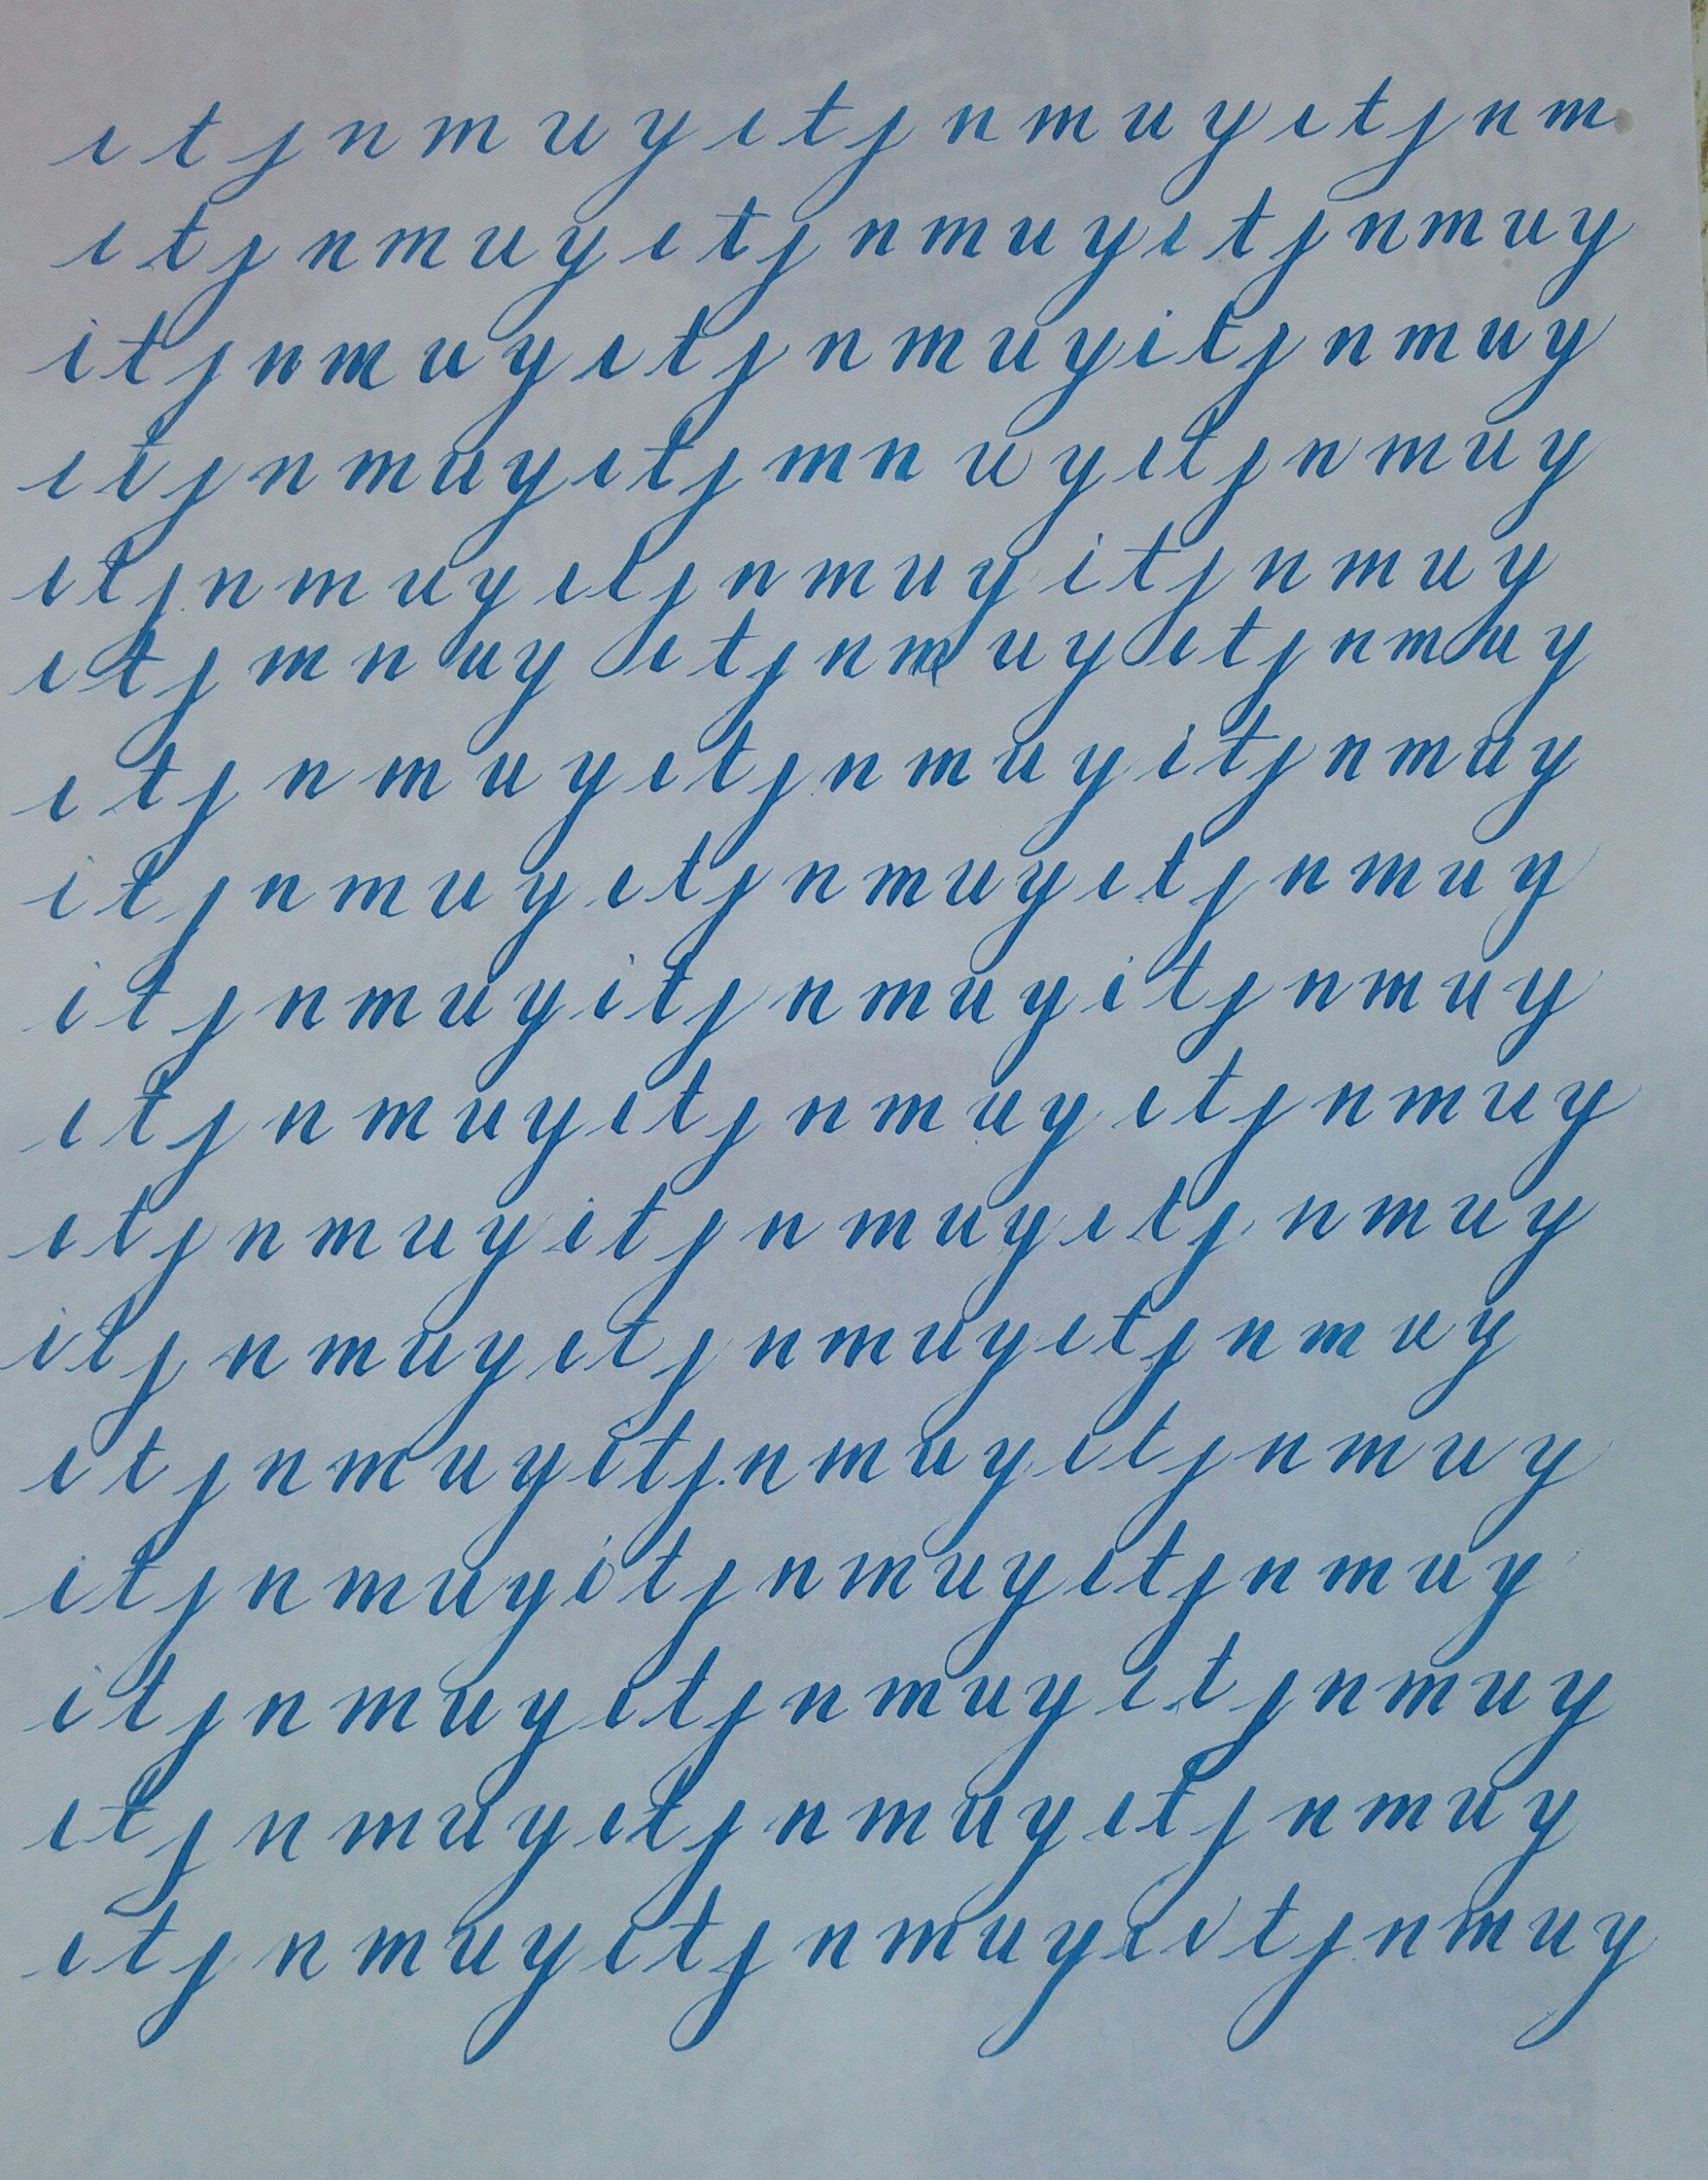 i t j n m u y i t j n m u y i t j n m
i t j n m u y i t j n m u y i t j n m u y
i t j n m u y i t j n m u y i t j n m u y
i t j n m u y i t j m n u y i t j n m u y
i t j n m u y i t j n m u y i t j n m u y
i t j m n u y i t j n m u y i t j n m u y
i t j n m u y i t j n m u y i t j n m u y
i t j n m u y i t j n m u y i t j n m u y
i t j n m u y i t j n m u y i t j n m u y
i t j n m u y i t j n m u y i t j n m u y
i t j n m u y i t j n m u y i t j n m u y
i t j n m u y i t j n m u y i t j n m u y
i t j n m u y i t j n m u y i t j n m u y
i t j n m u y i t j n m u y i t j n m u y
i t j n m u y i t j n m u y i t j n m u y
i t j n m u y i t j n m u y i t j n m u y
i t j n m u y i t j n m u y i i t j n m u y